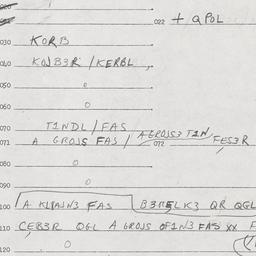 022 + QPOL
030 KORB
040 KOJB3R / KERBL
050 0
060 0
070 T1NDL / FAS
071 A GROJS FAS / 072 A GROJS3 T1N FES3R
080 0
090 0
100 A FAS B3 LK3 QR QGL
110 CEB3R OGL A GROJS OF1N3 FAS XX F
120 0